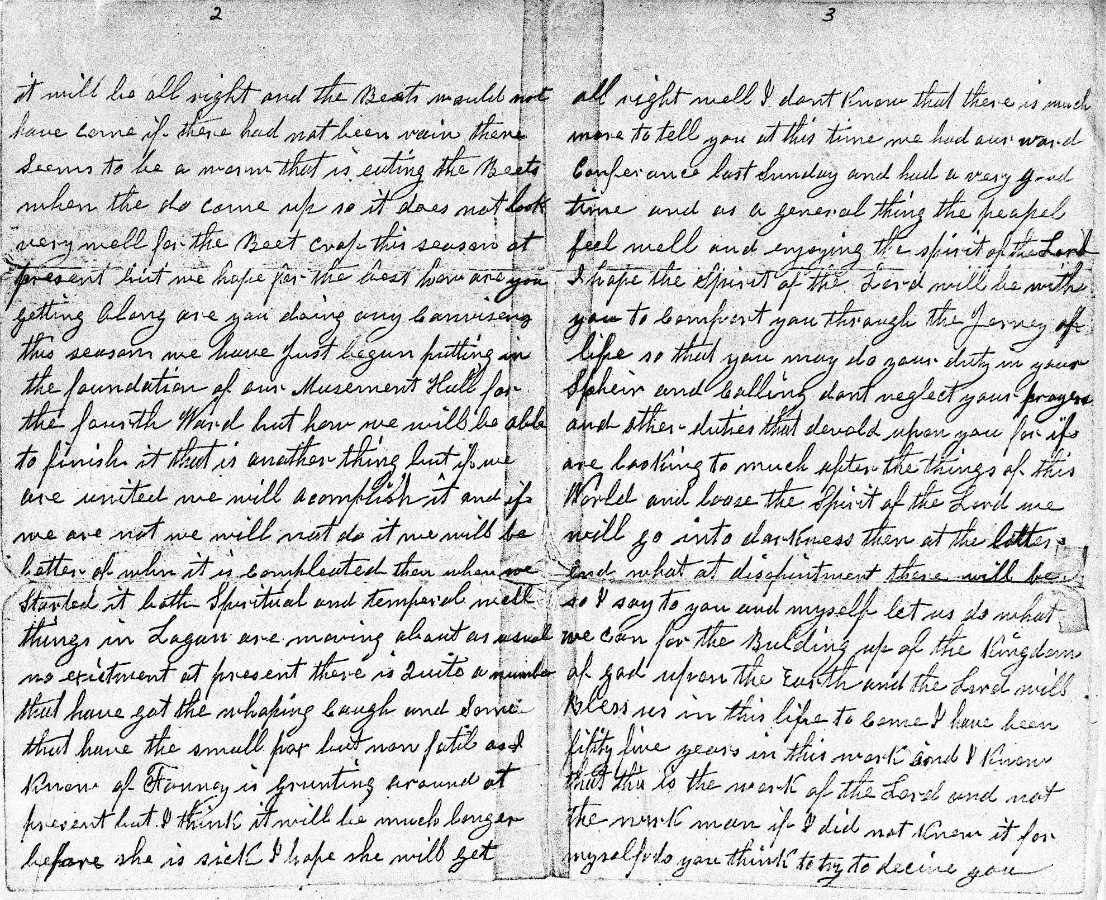 2
it will be all right and the Beets would not
have come if there had not been rain there
seems to be a worm that is eating the Beets
when the do come up so it does not look
very well for the Beet crop this season at
present but we hope for the best how are you
getting along are you doing any Canvising
this season we have Just begun putting in
the foundation of our Musement Hall for
the fourth Ward but how we will be able
to finish it that is another thing but if we
are united we will acomplish it and if
we are not we will not do it we will be
better of when it is compleated then when we
Started it both Spiritual and temperal well
things in Logan are moving about as usual
no exictment at present there is Quite a number
that have got the whoping Caugh and Some
that have the small pox but non fatil as I
Know of Fanney is grunting around at
present but I think it will be much longer
before she is sick I hope she will get
3
all right well I dont Know that there is much
more to tell you at this time we had our ward
Conferance last Sunday and had a very good
time and as a general thing the peapel
feel well and enjoying the spirit of the Lord
I hope the Spirit of the Lord will be with
you to Comfort you through the Jerney of
life so that you may do your duty in your
Spheir and Calling dont neglect your prayers
and other duties that devold upon you for if
are looking to much after the things of this
World and loose the Spirit of the Lord we
will go into darkness then at the latter
end what at disapintment there will be
so I say to you and myself let us do what
we can for the Building up of the Kingdom
of god upon the Earth and the Lord will
Bless us in this life to Come I have been
fifty five years in this work and I Know
that this is the work of the Lord and not
the work man if I did not Know it for
myself do you think to try to decive you